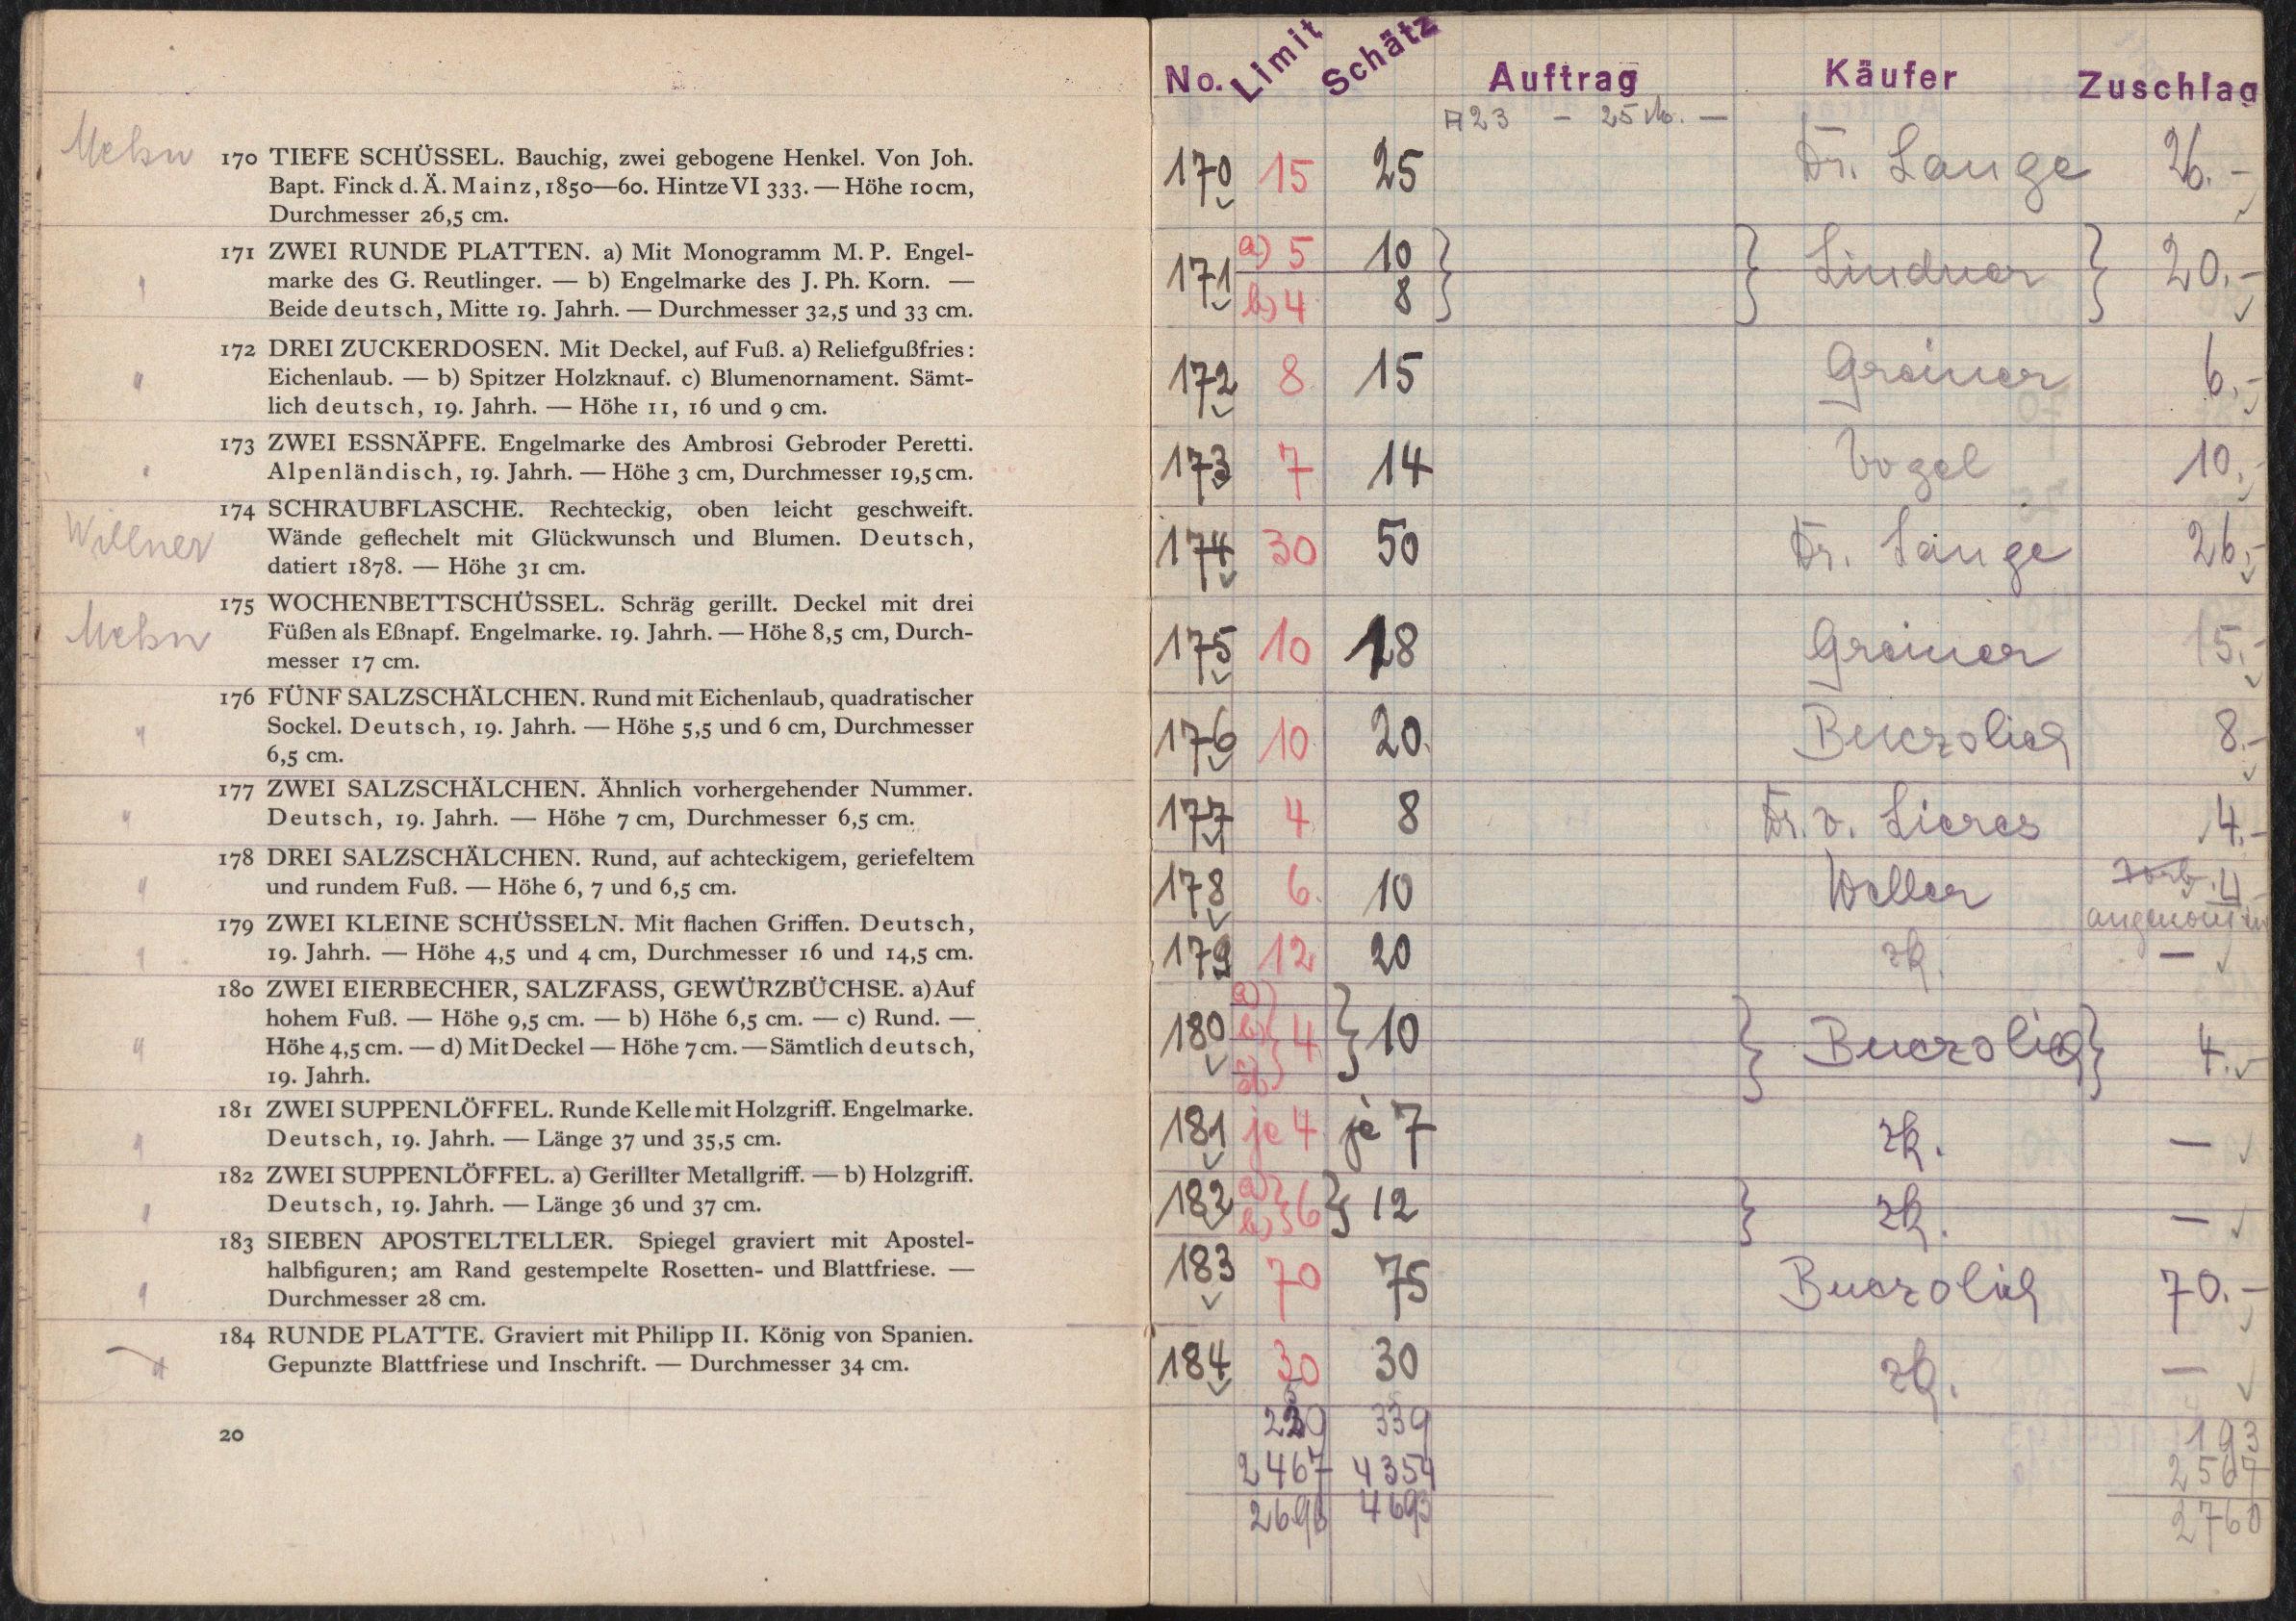 Mehn
170 TIEFE SCHÜSSEL. Bauchig, zwei gebogene Henkel. Von Joh.
Bapt. Finck d. Ä. Mainz, 1850—60. Hintze VI 333. — Höhe 10 cm,
Durchmesser 26,5 cm.
171 ZWEI RUNDE PLATTEN. a) Mit Monogramm M. P. Engel-
marke des G. Reutlinger. — b) Engelmarke des J. Ph. Korn. —
Beide deutsch, Mitte 19. Jahrh. — Durchmesser 32,5 und 33 cm.
"
172 DREI ZUCKERDOSEN. Mit Deckel, auf Fuß. a) Reliefgußfries:
Eichenlaub. — b) Spitzer Holzknauf. c) Blumenornament. Sämt-
lich deutsch, 19. Jahrh. — Höhe 11, 16 und 9 cm.
173 ZWEI ESSNÄPFE. Engelmarke des Ambrosi Gebroder Peretti.
Alpenländisch, 19. Jahrh. — Höhe 3 cm, Durchmesser 19,5 cm.
174 SCHRAUBFLASCHE. Rechteckig, oben leicht geschweift.
Willner Wände geflechelt mit Glückwunsch und Blumen. Deutsch,
datiert 1878. — Höhe 31 cm.
175 WOCHENBETTSCHÜSSEL. Schräg gerillt. Deckel mit drei
Mehn Füßen als Eßnapf. Engelmarke. 19. Jahrh. — Höhe 8,5 cm, Durch-
messer 17 cm.
176 FÜNF SALZSCHÄLCHEN. Rund mit Eichenlaub, quadratischer
" Sockel. Deutsch, 19. Jahrh. — Höhe 5,5 und 6 cm, Durchmesser
6,5 cm.
177 ZWEI SALZSCHÄLCHEN. Ähnlich vorhergehender Nummer.
" Deutsch, 19. Jahrh. — Höhe 7 cm, Durchmesser 6,5 cm.
178 DREI SALZSCHÄLCHEN. Rund, auf achteckigem, geriefeltem
" und rundem Fuß. — Höhe 6, 7 und 6,5 cm.
179 ZWEI KLEINE SCHÜSSELN. Mit flachen Griffen. Deutsch,
" 19. Jahrh. — Höhe 4,5 und 4 cm, Durchmesser 16 und 14,5 cm.
180 ZWEI EIERBECHER, SALZFASS, GEWÜRZBÜCHSE. a) Auf
hohem Fuß. — Höhe 9,5 cm. — b) Höhe 6,5 cm. — c) Rund. —
" Höhe 4,5 cm. — d) Mit Deckel — Höhe 7 cm. — Sämtlich deutsch,
19. Jahrh.
181 ZWEI SUPPENLÖFFEL. Runde Kelle mit Holzgriff. Engelmarke.
" Deutsch, 19. Jahrh. — Länge 37 und 35,5 cm.
182 ZWEI SUPPENLÖFFEL. a) Gerillter Metallgriff. — b) Holzgriff.
" Deutsch, 19. Jahrh. — Länge 36 und 37 cm.
183 SIEBEN APOSTELTELLER. Spiegel graviert mit Apostel-
halbfiguren; am Rand gestempelte Rosetten- und Blattfriese. —
" Durchmesser 28 cm.
184 RUNDE PLATTE. Graviert mit Philipp II. König von Spanien.
" Gepunzte Blattfriese und Inschrift. — Durchmesser 34 cm.
20
No. Limit Schätz Auftrag Käufer Zuschlag
A 23 — 25 M. —
170 15 25 Dr. Lange 26.-
171 a) 5 10 } } Lindner } 20.-
b) 4 8
172 8 15 Greiner 6.-
173 7 14 Vogel 10.-
174 30 50 Dr. Lange 26.-
175 10 18 Greiner 15.-
176 10 20. Buczolich 8.-
177 4 8 Dr. v. Lieres 4.-
178 6. 10 Weller 4.-
angenommen
179 12 20 zk. —
180 a) b) 4 } 10 } Buczolich } 4.
181 je 4 je 7 zk. —
182 a) b) } 6 } 12 } zk. —
183 70 75 Buczolich 70.-
184 30 30 zk. —
339 193
2467 4354 2567
4693 2760